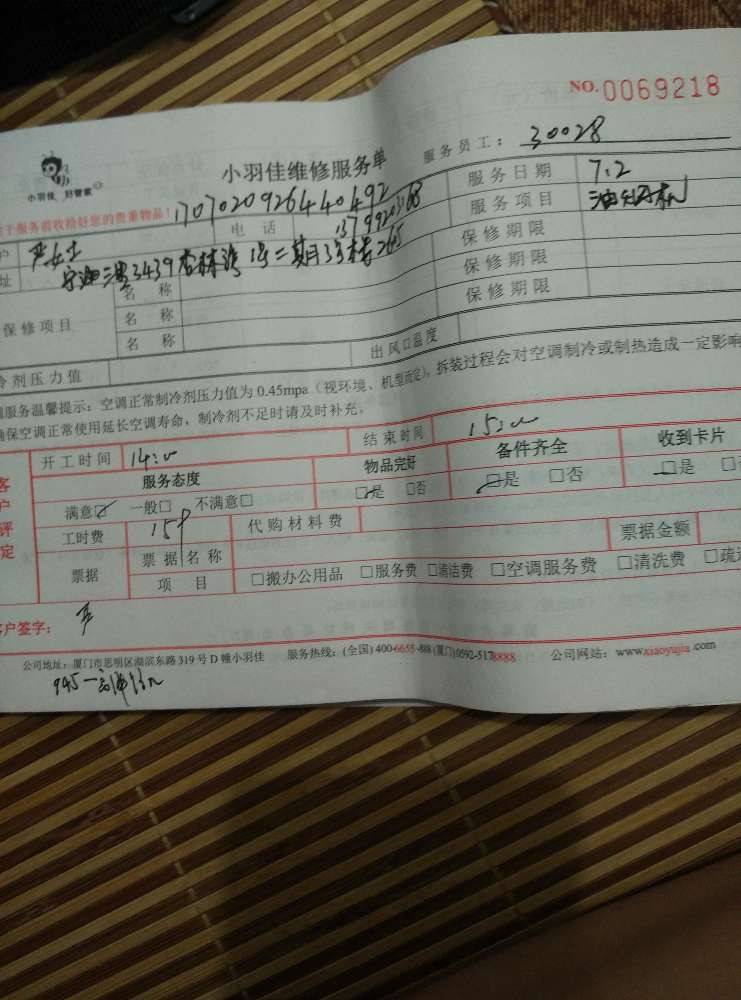 NO.0069218
小羽佳 好管家
小羽佳维修服务单
服务员工：30028
于服务前收拾好您的贵重物品！
1707020926440492
户 严女士 电话 服务日期 7.2
址 3439杏林湾1号二期 服务项目 油烟机
保修项目 名称 保修期限
名称 保修期限
名称 保修期限
冷剂压力值 出风口温度
调服务温馨提示：空调正常制冷剂压力值为0.45mpa（视环境、机型而定），拆装过程会对空调制冷或制热造成一定影响
确保空调正常使用延长空调寿命，制冷剂不足时请及时补充。
客户评定
开工时间 14:00 结束时间 15:00
服务态度 物品完好 备件齐全 收到卡片
满意☑ 一般□ 不满意□ ☑是 □否 ☑是 □否 ☑是 □否
工时费 代购材料费
票据 票据名称 票据金额
项目 □搬办公用品 □服务费 □清洁费 □空调服务费 □清洗费 □疏通
客户签字：严
公司地址：厦门市思明区湖滨东路319号D幢小羽佳 服务热线：(全国)400-6655-888 (厦门)0592-5178888 公司网站：www.xiaoyujia.com